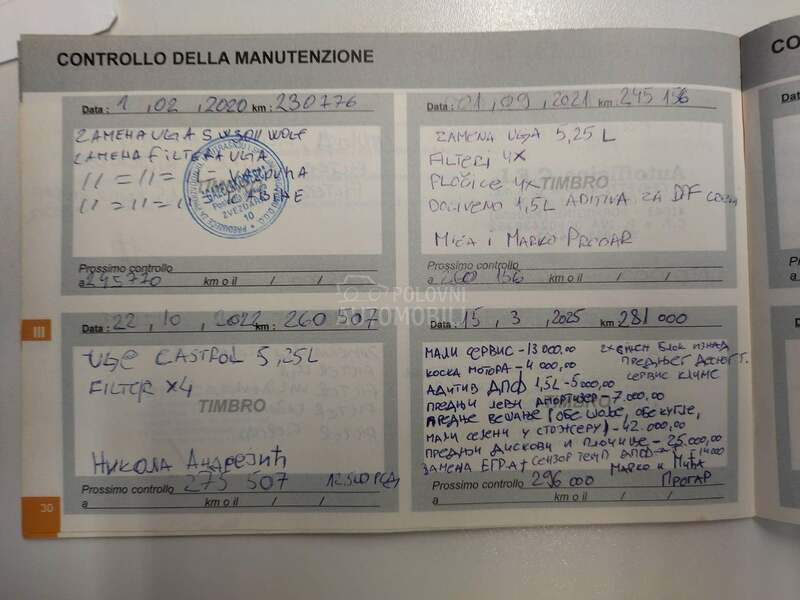 CONTROLLO DELLA MANUTENZIONE
CO
Data: 1, 02, 2020 km: 230776
ZAMENA ULJA 5W30
ZAMENA FILTERA ULJA
11 = 11 = 11 = VAZDUHA
11 = 11 = 11 = KABINE
ZVEZDARA
10
Prossimo controllo
a 245770 km o il / /
Data: 01, 09, 2021 km: 245 156
ZAMENA ULJA 5,25 L
FILTERI 4X
PLOČICE 4X
TIMBRO
DOLIVENO 1,5L ADITIVA ZA DPF
MIĆA I MARKO PROGAR
Prossimo controllo
a 260 156 km o il / /
POLOVNI AUTOMOBILI
III
Data: 22, 10, 2022 km: 260 507
ULJE CASTROL 5,25L
FILTER X4
TIMBRO
НИКОЛА АНДРЕЈИЋ
Prossimo controllo 275 507 12.500 РСД
a km o il / /
Data: 15, 3, 2025 km: 281 000
МАЛИ СЕРВИС - 13 000,00
КОСКА МОТОРА - 4 000,00
АДИТИВ ДПФ 1,5L - 5 000,00
ПРЕДЊИ ЛЕВИ АМОРТИЗЕР - 7.000,00
ПРЕДЊЕ ВЕШАЊЕ (ОБЕ ШОЉЕ, ОБЕ КУГЛЕ,
МАЛИ СЕЛЕНИ У СТОЖЕРУ) - 42 000,00
ПРЕДЊИ ДИСКОВИ И ПЛОЧИЦЕ - 25 000,00
ЗАМЕНА ЕГРА + СЕНЗОР ТЕМП ДПФ
2X БЛОК ИЗНАД
ПРЕДЊЕГ ДЕСНОГ Т.
СЕРВИС КЛИМЕ
МАРКО И МИЋА
ПРОГАР
Prossimo controllo 296 000
a km o il / /
30